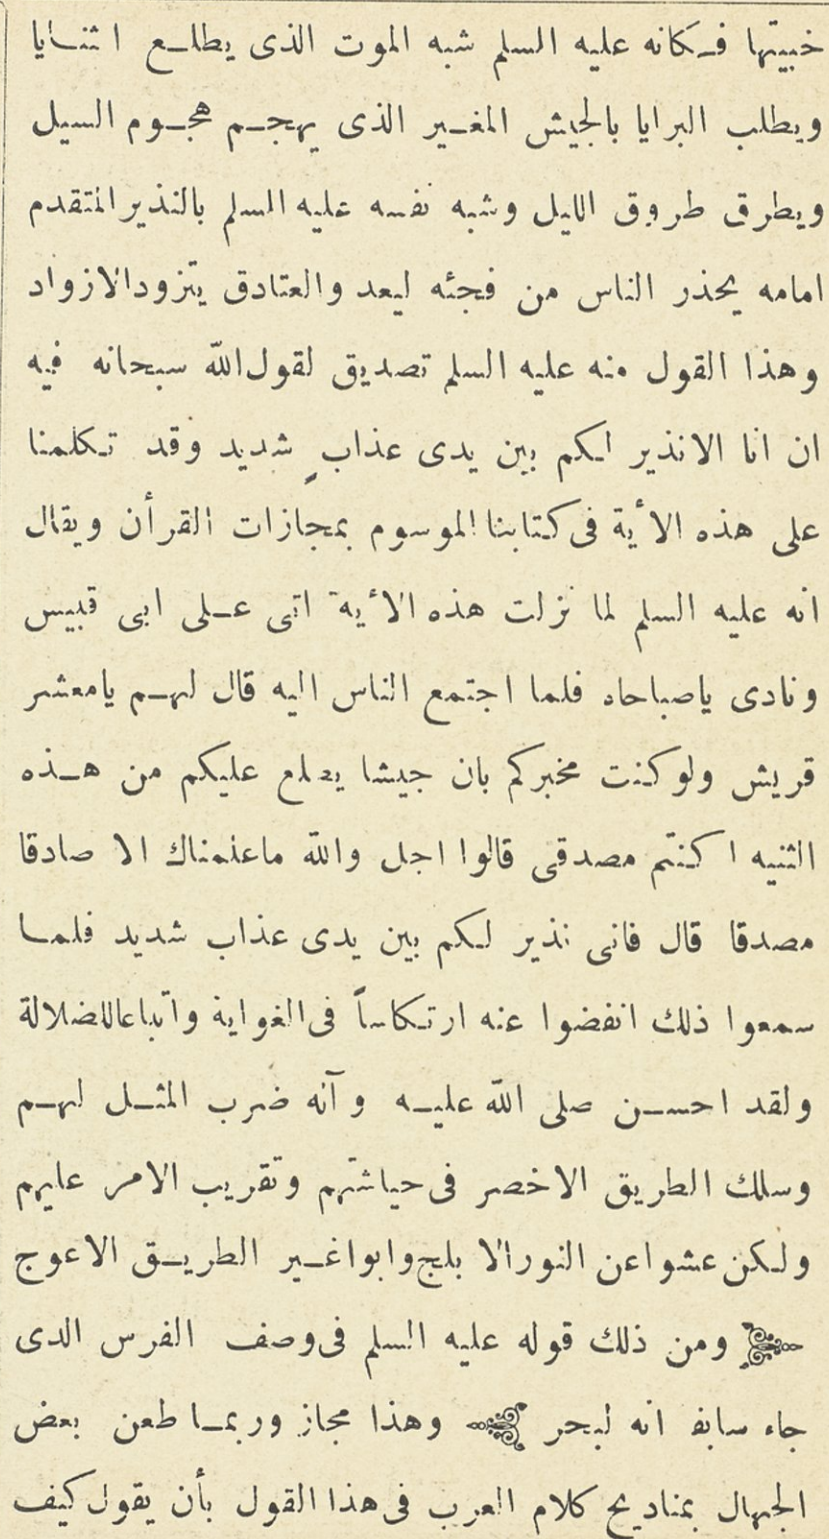 خبيتها فكانه عليه السلم شبه الموت الذى يطلع الثنايا
ويطلب البرايا بالجيش المغير الذى يهجم هجوم السيل
ويطرق طروق الليل وشبه نفسه عليه السلم بالنذير المتقدم
امامه يحذر الناس من فجئه ليعد والعتادق يتزود الازواد
وهذا القول منه عليه السلم تصديق لقول الله سبحانه فيه
ان انا الا نذير لكم بين يدى عذابٍ شديد وقد تكلمنا
على هذه الأية فى كتابنا الموسوم بمجازات القرأن ويقال
انه عليه السلم لما نزلت هذه الأية اتى على ابى قبيس
ونادى ياصباحاه فلما اجتمع الناس اليه قال لهم يامعشر
قريش ولو كنت مخبركم بان جيشا يطلع عليكم من هذه
الثنيه اكنتم مصدقى قالوا اجل والله ماعلمناك الا صادقا
مصدقا قال فانى نذير لكم بين يدى عذاب شديد فلما
سمعوا ذلك انفضوا عنه ارتكاساً فى الغواية واتباعاللضلالة
ولقد احسن صلى الله عليه وآنه ضرب المثل لهم
وسلك الطريق الاخصر فى حياشتهم وتقريب الامر عليهم
ولكن عشواعن النورالا بلج وابواغير الطريق الاعوج
ومن ذلك قوله عليه السلم فى وصف الفرس الدى
جاء سابقا انه لبحر وهذا مجاز وربما طعن بعض
الجهال بمناديح كلام العرب فى هذا القول بأن يقول كيف